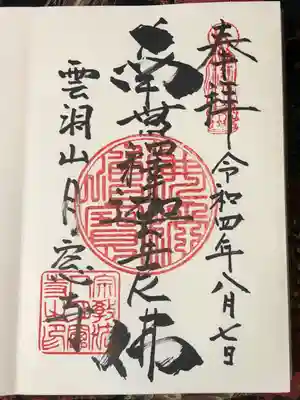 奉拝 令和四年八月七日
南無釋迦牟尼佛
雲洞山月窓寺